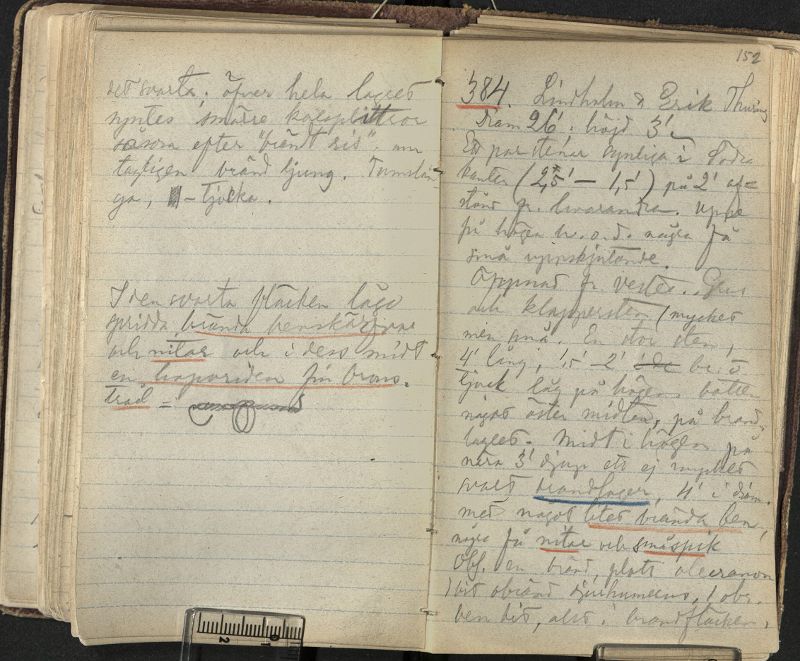 det svarta; öfver hela lagret
syntes smärre kolsplittror
såsom efter "brändt ris", an-
tagligen bränd ljung. Tumslån-
ga, – tjocka.
I den svarta fläcken lågo
spridda brända benskärfvor
och nitar och i dess midt
en hoprriden fin brons-
tråd =
152
384. Lindholm & Erik Thuring
diam 26'. höjd 3'.
Ett par stenar synliga i södra
kanten (2,5' – 1,5') på 2' af-
stånd fr. hvarandra. Uppe
på högen h. o. d. några få
små uppskjutande.
Öppnad fr. vester. Grus
och klappersten (mycket
men små. En stor sten,
4' lång, 1,5'-2' br. o.
tjock låg på högens botten
något öster midten, på brand-
lagret. Midt i högen på
nära 3' djup ett ej mycket
svart brandlager, 4' i diam.
med något litet brända ben,
några få nitar och småspik
Obs. en bränd, platt
1 bit obränd djurhumerus, 1 obr.
ben bit, allt i brandfläcken.